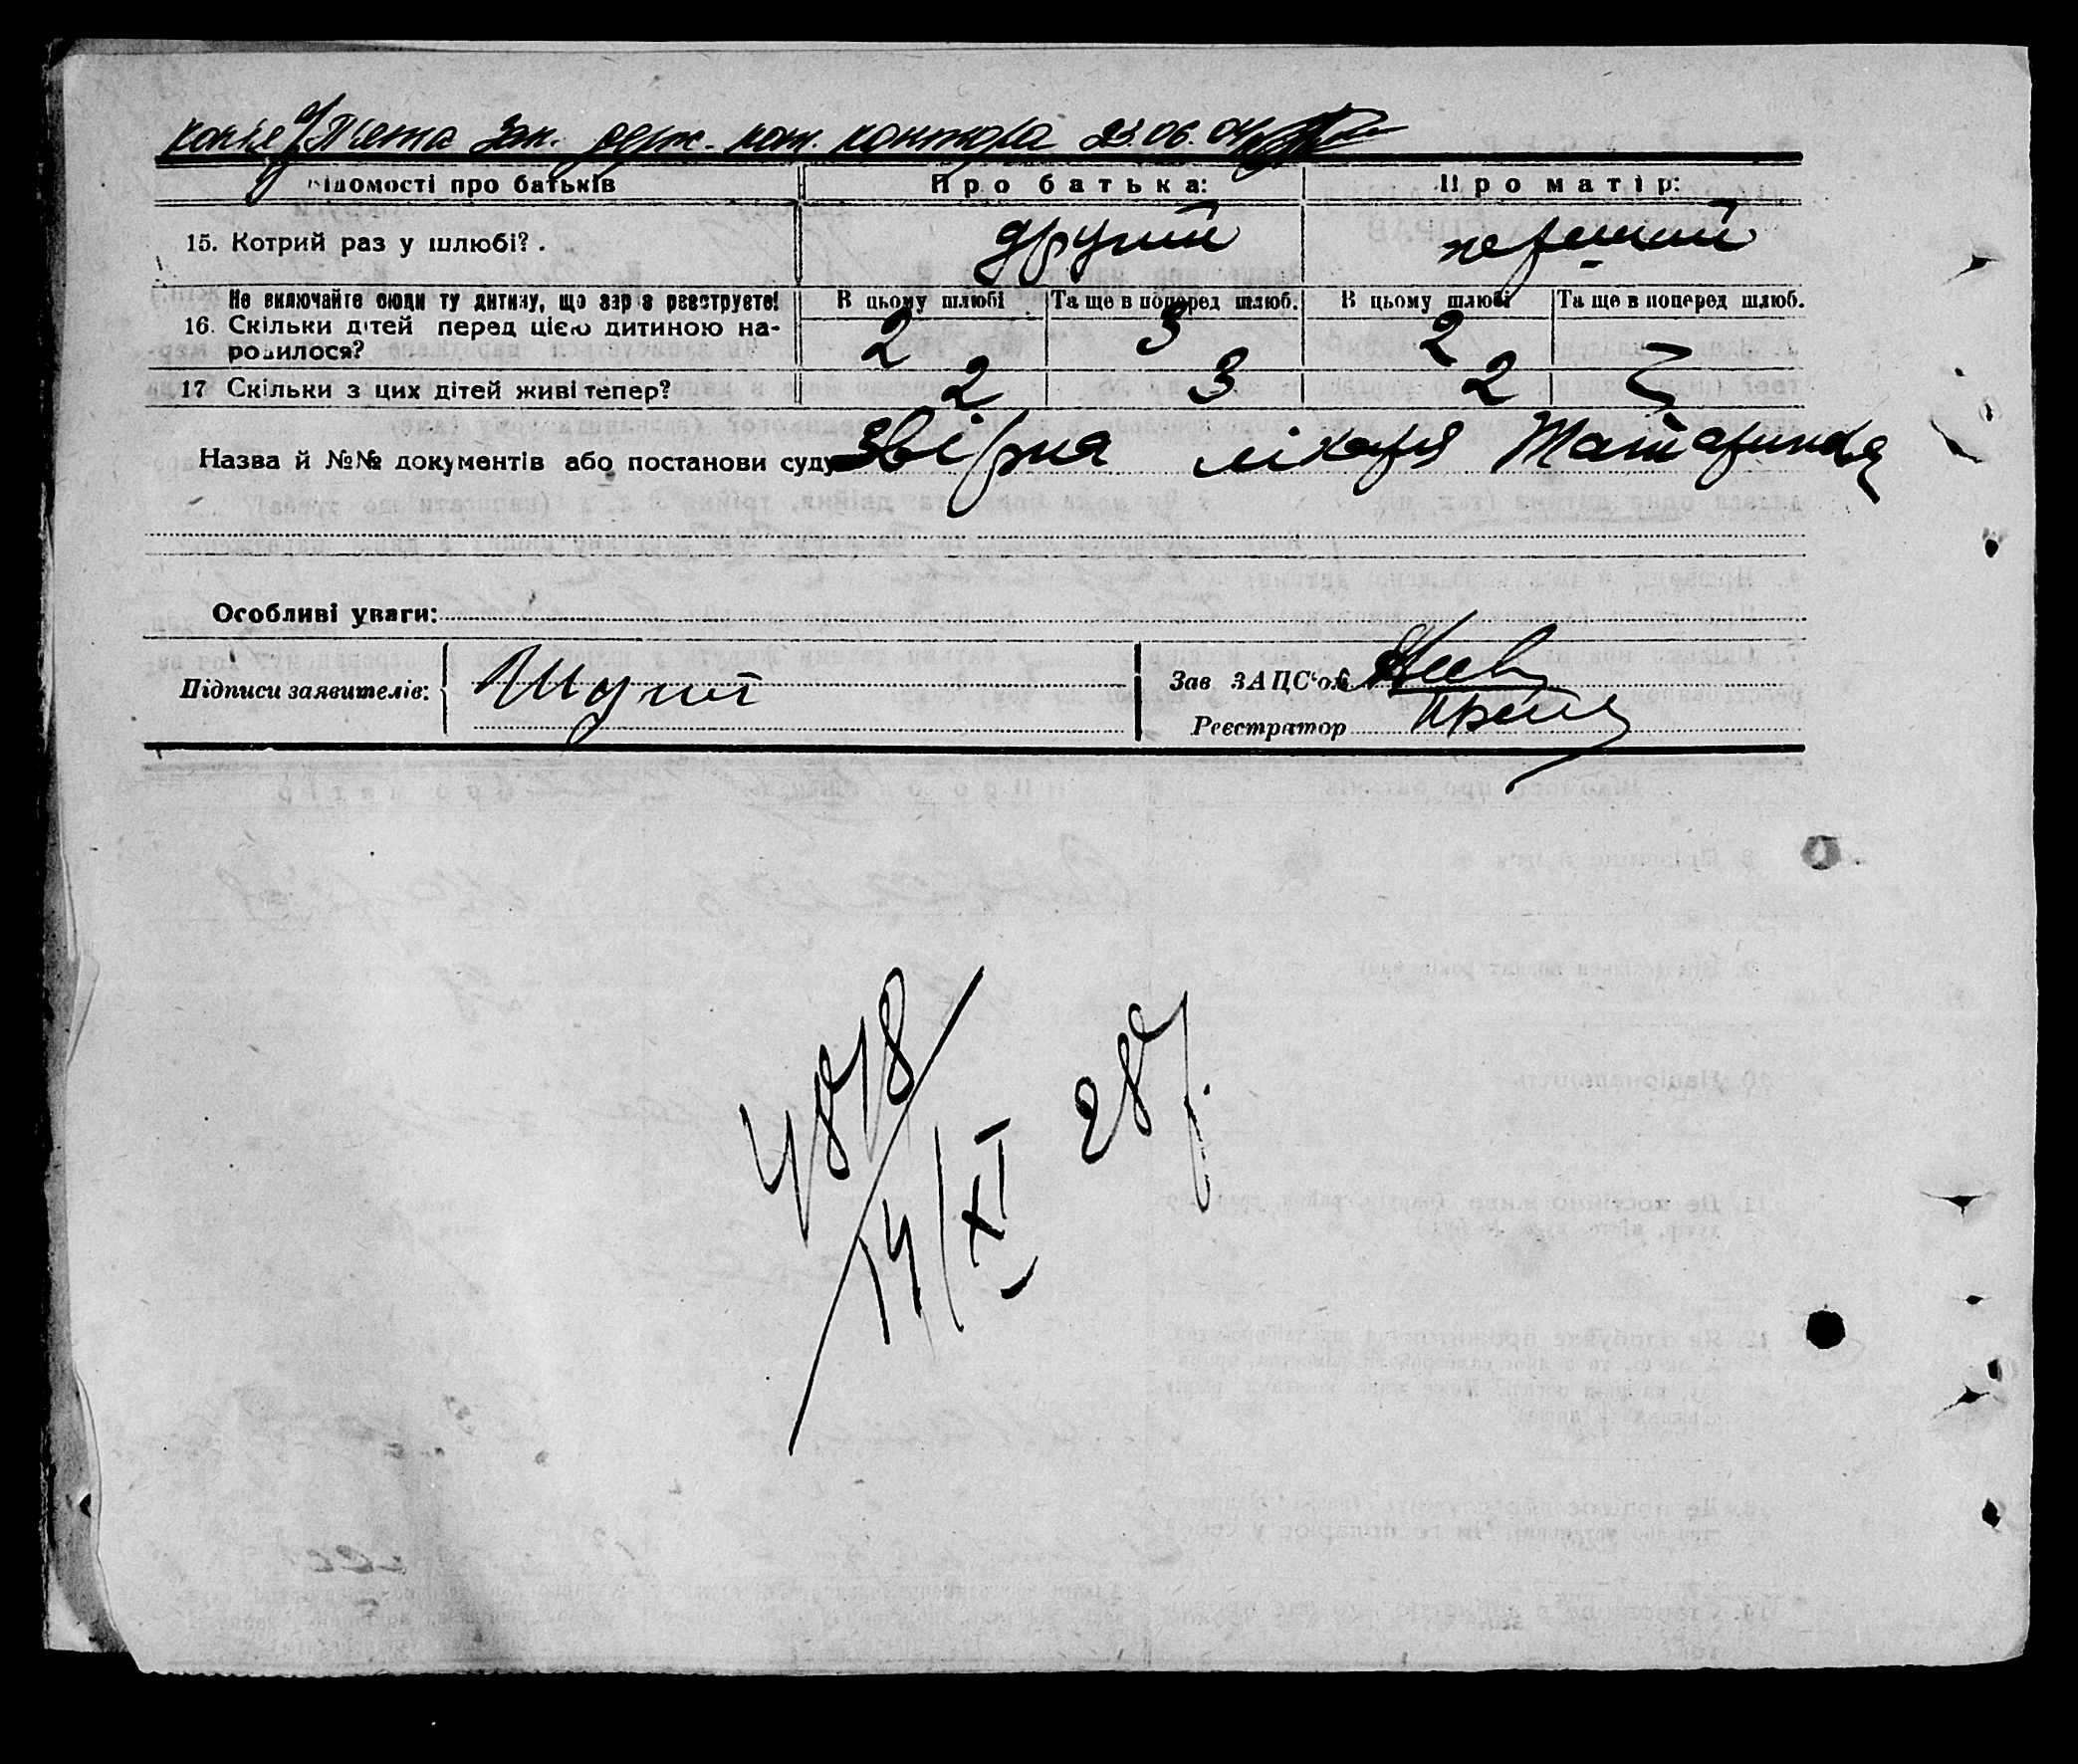 копія П'ята Зап. держ. нот. контора 23.06.04
Відомості про батьків Про батька: Про матір:
15. Котрий раз у шлюбі? . другий перший
Не включайте сюди ту дитину, що зараз реєструєте! В цьому шлюбі Та ще в поперед шлюб. В цьому шлюбі Та ще в поперед шлюб.
16. Скільки дітей перед цією дитиною на- 2 3 2 —
родилося?
17 Скільки з цих дітей живі тепер? 2 3 2
Назва й №№ документів або постанови суду лікаря
Особливі уваги:
Підписи заявителів:
Зав ЗАЦС'ом
Реєстратор
4878
14/XI 28 р.